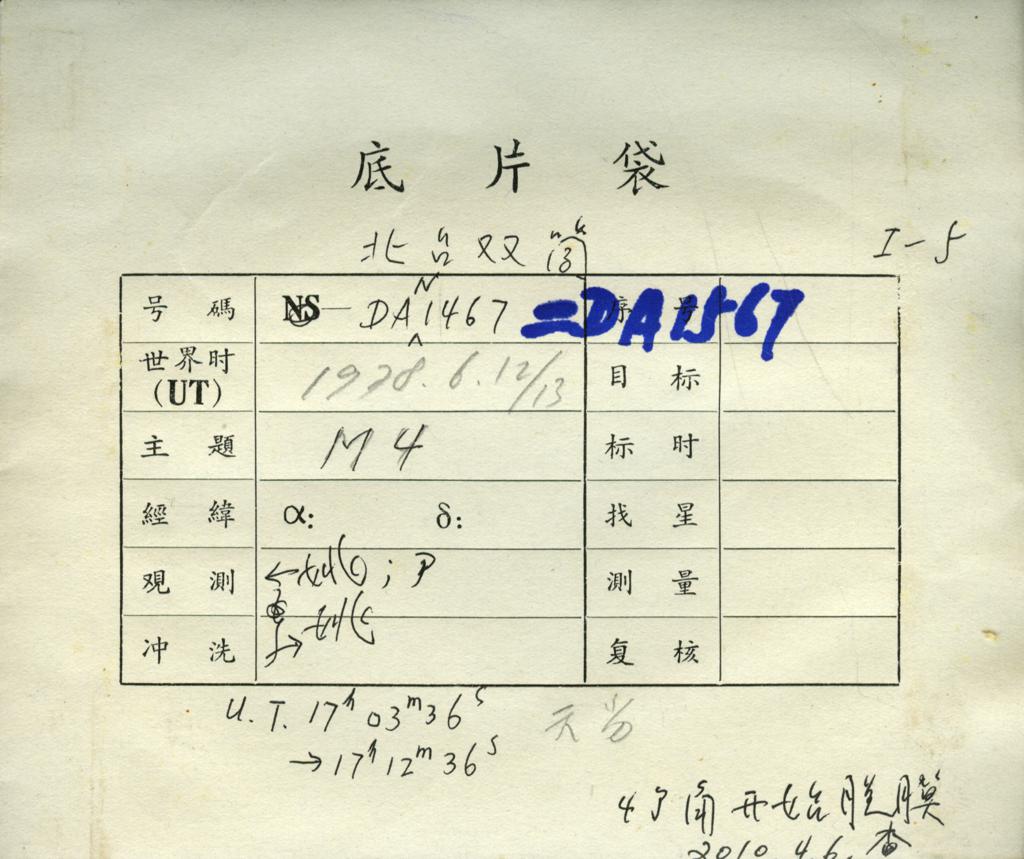 底片袋
北台双筒
I-5
号碼 NS-DA N 1467 =DA1567 序号
世界时 (UT) 1978.6.12/13 目标
主題 M4 标时
經緯 α: δ: 找星
观測 ; P 測量
冲洗 复核
U.T. 17h 03m 36s
→17h 12m 36s
4个角开始脱膜
2010.4.6.